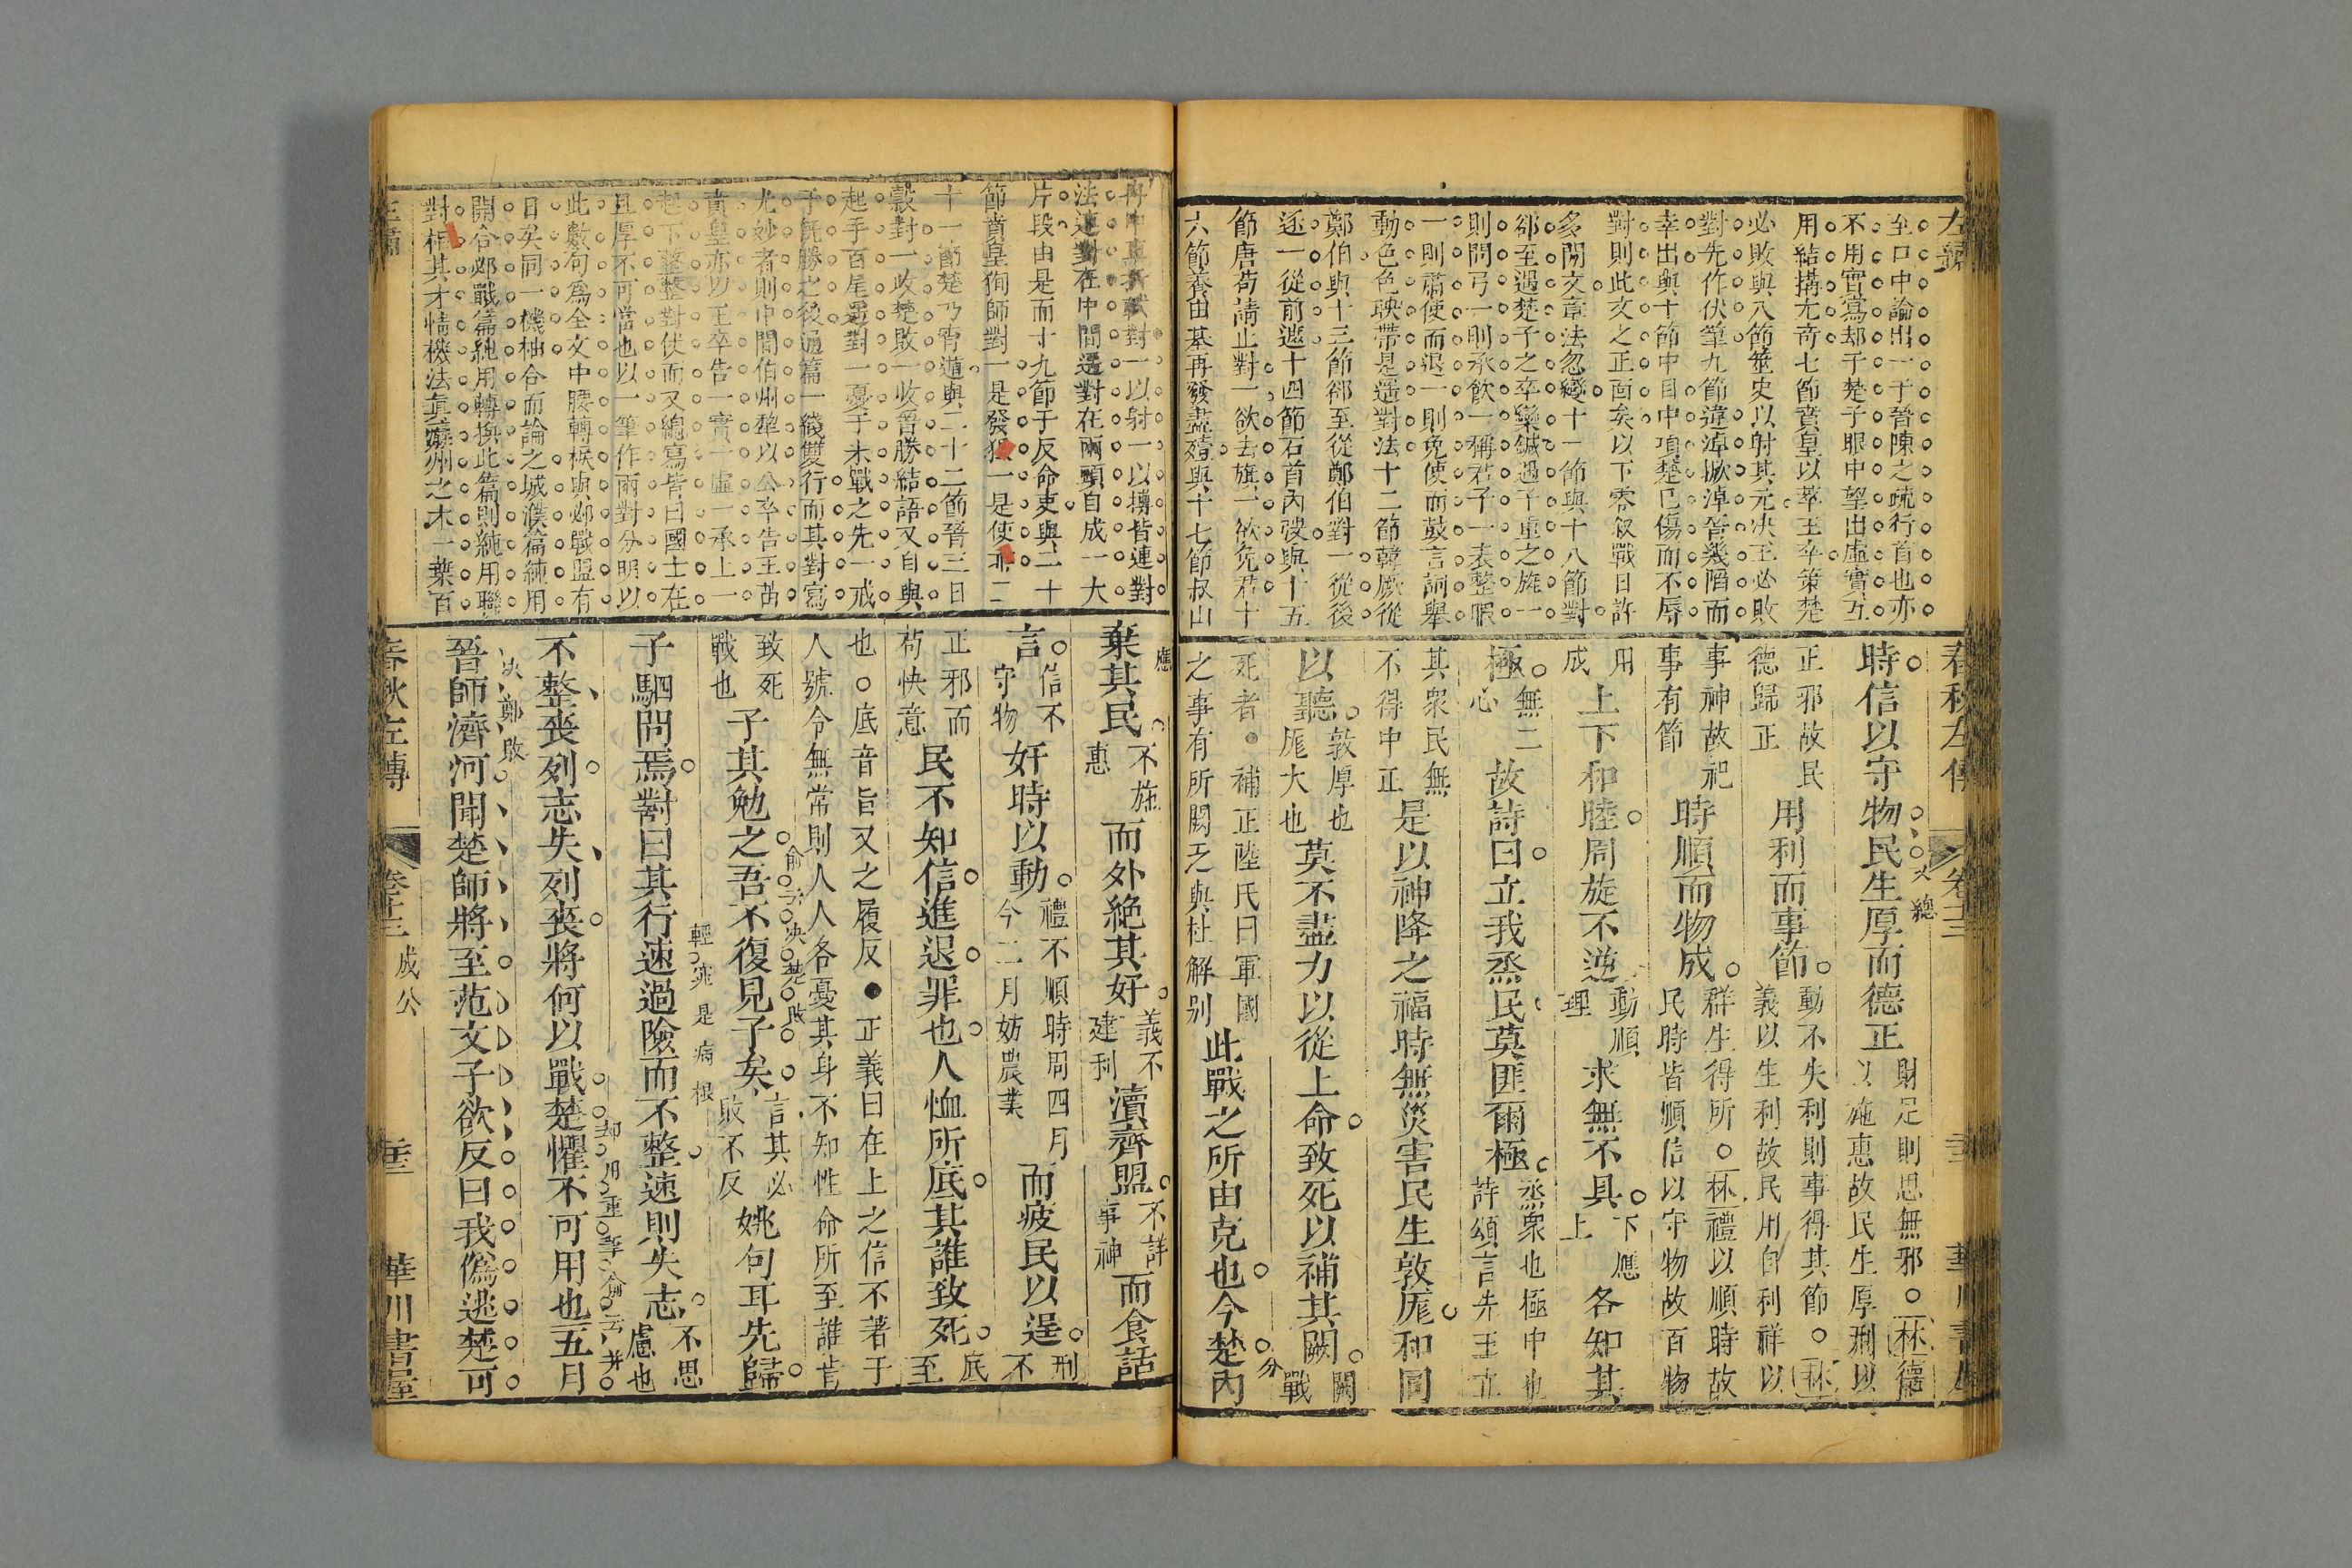 左繡
至口中論出一于晉陳之疏行首也亦
不用實寫却于楚子眼中望出虛實互
用結搆尢奇七節賁皇以萃王卒策楚
必敗與八節筮史以射其元决王必敗
對先作伏筆九節違淖掀淖晉幾陷而
幸出與十節中目中項楚已傷而不辱
對則此文之正面矣以下零叙戰日許
多閒文章法忽變十一節與十八節對
郤至遇楚子之卒欒鍼過子重之旌一
則問弓一則承飲一稱君子一表整暇
一則肅使而退一則免使而鼓言詞舉
動色色映帶是遥對法十二節韓厥從
鄭伯與十三節郤至從鄭伯對一從後
逐一從前遮十四節石首內弢與十五
節唐苟請止對一欲去旗一欲免君十
六節養由基再發盡殪與十七節叔山
春秋左傳 卷十三 華川書屋
時信以守物民生厚而德正
財足則思無邪○林德
以施惠故民生厚刑以
正邪故民
德歸正
用利而事節
動不失利則事得其節○林
義以生利故民用自利祥以
事神故祀
事有節
時順而物成
群生得所○林禮以順時故
民時皆順信以守物故百物
用
成
上下和睦周旋不逆
動順
理
求無不具
下應
上
各知其
極
無二
心
故詩曰立我烝民莫匪爾極
烝衆也極中也
詩頌言先王立
其衆民無
不得中正
是以神降之福時無災害民生敦厖和同
以聽
敦厚也
厖大也
莫不盡力以從上命致死以補其闕
闕
戰
死者。補正陸氏曰軍國
之事有所闕乏與杜解别
此戰之所由克也今楚內
冉中車折軾對一以射一以搏皆連對
法連對在中間遥對在兩頭自成一大
片段由是而十九節于反命吏與二十
節賁皇狥師對一是發狠一是使乖二
十一節楚乃宵遁與二十二節晉三日
穀對一收楚敗一收晉勝結語又自與
起手百尾遥對一憂于未戰之先一戒
于既勝之後通篇一綫雙行而其對寫
尢妙者則中間伯州犂以公卒告王苗
賁皇亦以王卒告一實一虛一承上一
起下整整對伏而又總寫皆曰國士在
且厚不可當也以一筆作兩對分明以
此數句爲全文中腰轉棙與邲戰盟有
日矣同一機柚合而論之城濮篇純用
開合邲戰篇純用轉換此篇則純用聯
對相其才情機法眞㜑州之木一葉百
棄其民
不施
惠
而外絶其好
義不
建利
瀆齊盟
不詳
事神
而食話
言
信不
守物
奸時以動
禮不順時周四月
今二月妨農業
而疲民以逞
刑
不
正邪而
苟快意
民不知信進退罪也人恤所底其誰致死
底
至
也○底音旨又之履反●正義曰在上之信不著于
人號令無常則人人各憂其身不知性命所至誰肯
致死
戰也
子其勉之吾不復見子矣
言其必
敗不反
姚句耳先歸
子駟問焉對曰其行速過險而不整速則失志
不思
慮也
輕窕是病根
不整喪列志失列喪將何以戰楚懼不可用也五月
决鄭敗
晉師濟河聞楚師將至范文子欲反曰我僞逃楚可
春秋左傳 卷十三 成公 華川書屋